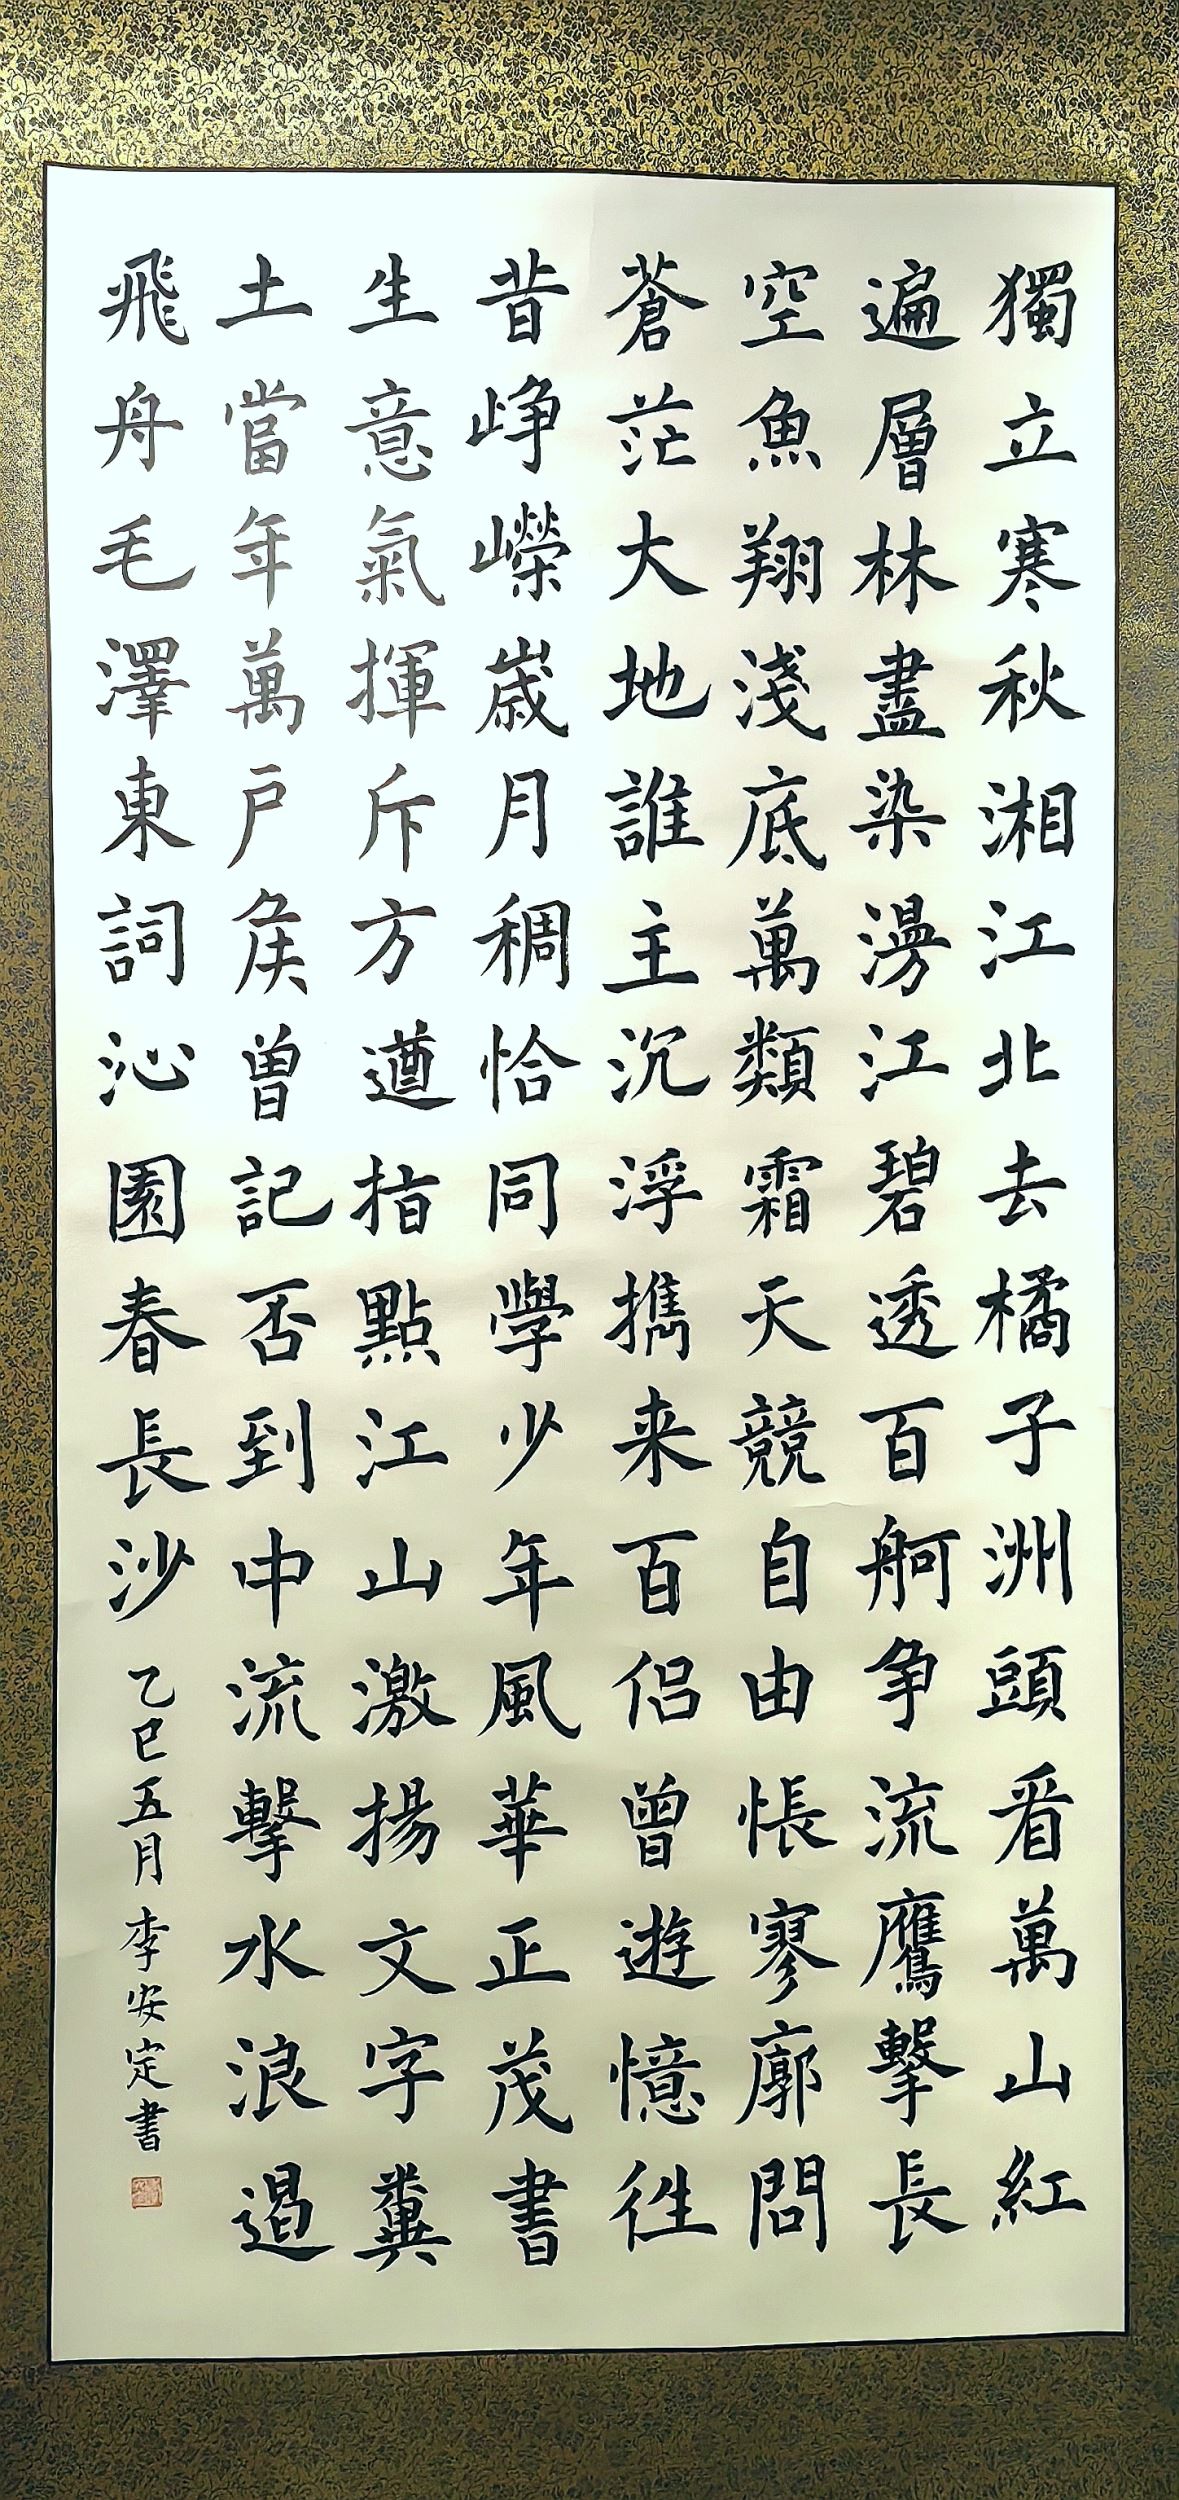 獨立寒秋湘江北去橘子洲頭看萬山紅
遍層林盡染漫江碧透百舸争流鷹擊長
空魚翔淺底萬類霜天競自由悵寥廓問
蒼茫大地誰主沉浮攜来百侣曾遊憶往
昔崢嶸歲月稠恰同學少年風華正茂書
生意氣揮斥方遒指點江山激揚文字糞
土當年萬户侯曾記否到中流擊水浪遏
飛舟毛澤東詞沁園春長沙 乙巳五月 李安定書